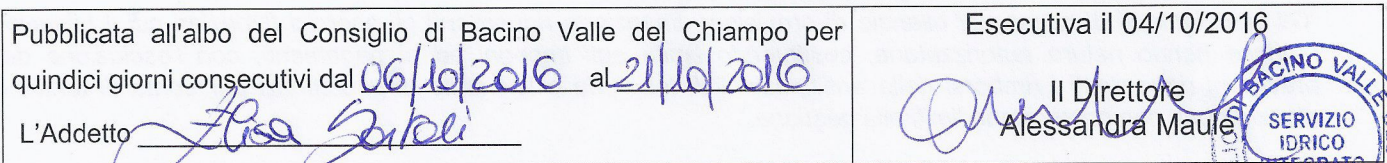 Pubblicata all'albo del Consiglio di Bacino Valle del Chiampo per
quindici giorni consecutivi dal 06/10/2016 al 21/10/2016
L'Addetto Elisa
Esecutiva il 04/10/2016
Il Direttore
Alessandra Maule
BACINO VALLE
SERVIZIO
IDRICO
INTEGRATO